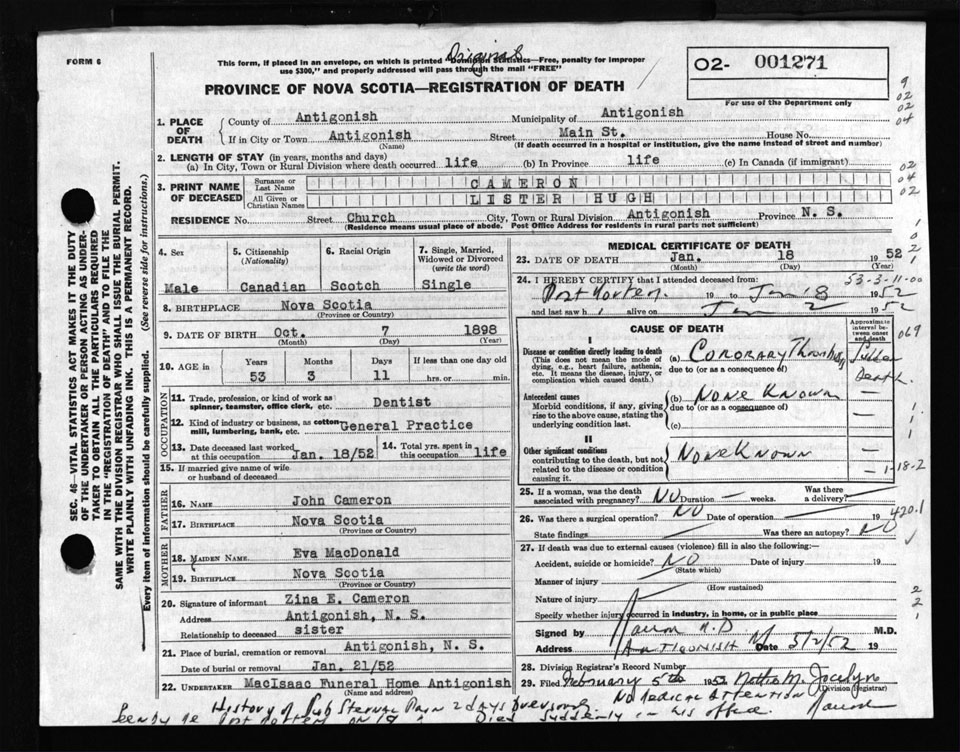 FORM 6
Original
This form, if placed in an envelope, on which is printed "Dominion Statistics—Free, penalty for improper
use $300," and properly addressed will pass through the mail "FREE"
02- 001271
For use of the Department only
PROVINCE OF NOVA SCOTIA—REGISTRATION OF DEATH
9
02
02
04
1. PLACE OF DEATH
County of Antigonish Municipality of Antigonish
If in City or Town Antigonish Street Main St. House No.
(Name) (If death occurred in a hospital or institution, give the name instead of street and number)
2. LENGTH OF STAY (in years, months and days)
(a) In City, Town or Rural Division where death occurred life (b) In Province life (c) In Canada (if immigrant)
02
04
02
3. PRINT NAME OF DECEASED
Surname or Last Name CAMERON
All Given or Christian Names LISTER HUGH
RESIDENCE No. Street Church City, Town or Rural Division Antigonish Province N. S.
(Residence means usual place of abode. Post Office Address for residents in rural parts not sufficient)
SEC. 46—VITAL STATISTICS ACT MAKES IT THE DUTY
OF THE UNDERTAKER OR PERSON ACTING AS UNDER-
TAKER TO OBTAIN ALL THE PARTICULARS REQUIRED
IN THE "REGISTRATION OF DEATH" AND TO FILE THE
SAME WITH THE DIVISION REGISTRAR WHO SHALL ISSUE THE BURIAL PERMIT.
WRITE PLAINLY WITH UNFADING INK. THIS IS A PERMANENT RECORD.
Every item of information should be carefully supplied. (See reverse side for instructions.)
4. Sex
Male
5. Citizenship
(Nationality)
Canadian
6. Racial Origin
Scotch
7. Single, Married,
Widowed or Divorced
(write the word)
Single
8. BIRTHPLACE Nova Scotia
(Province or Country)
9. DATE OF BIRTH Oct. 7 1898
(Month) (Day) (Year)
10. AGE in
Years Months Days If less than one day old
53 3 11 hrs. or min.
OCCUPATION
11. Trade, profession, or kind of work as
spinner, teamster, office clerk, etc. Dentist
12. Kind of industry or business, as cotton
mill, lumbering, bank, etc. General Practice
13. Date deceased last worked
at this occupation Jan. 18/52
14. Total yrs. spent in
this occupation life
15. If married give name of wife
or husband of deceased
FATHER
16. NAME John Cameron
17. BIRTHPLACE Nova Scotia
(Province or Country)
MOTHER
18. MAIDEN NAME Eva MacDonald
19. BIRTHPLACE Nova Scotia
(Province or Country)
20. Signature of informant Zina E. Cameron
Address Antigonish, N. S.
Relationship to deceased sister
21. Place of burial, cremation or removal Antigonish, N. S.
Date of burial or removal Jan. 21/52
22. UNDERTAKER MacIsaac Funeral Home Antigonish
(Name and Address)
MEDICAL CERTIFICATE OF DEATH
23. DATE OF DEATH Jan. 18 1952
(Month) (Day) (Year)
53-3-11-00
24. I HEREBY CERTIFY that I attended deceased from:
Post Mortem 19 to Jan 18 1952
and last saw h alive on Jan 2 1952
CAUSE OF DEATH
Approximate interval between onset and death
069
I
Disease or condition directly leading to death
(This does not mean the mode of
dying, e.g., heart failure, asthenia,
etc. It means the disease, injury, or
complication which caused death.)
(a) Coronary Thrombosis
due to (or as a consequence of)
Sudden Death.
Antecedent causes
Morbid conditions, if any, giving
rise to the above cause, stating the
underlying condition last.
(b) None Known —
due to (or as a consequence of)
(c) —
II
Other significant conditions
contributing to the death, but not
related to the disease or condition
causing it.
None Known —
1-18-2
25. If a woman, was the death
associated with pregnancy? NO Duration — weeks. Was there
a delivery? —
26. Was there a surgical operation? NO Date of operation — 19
420.1
State findings — Was there an autopsy? NO
27. If death was due to external causes (violence) fill in also the following:—
Accident, suicide or homicide? NO Date of injury 19
(State which)
Manner of injury
(How sustained)
Nature of injury
Specify whether injury occurred in industry, in home, or in public place
2
2
1
Signed by M.D M.D.
Address Antigonish Date 5/2/52 19
28. Division Registrar's Record Number
29. Filed February 5th 1952 M. Jocelyn
(Division Registrar)
No Medical Attention
History of Sub Sternal Pain 2 days previously.
Post Mortem on 18 Died suddenly in his office.